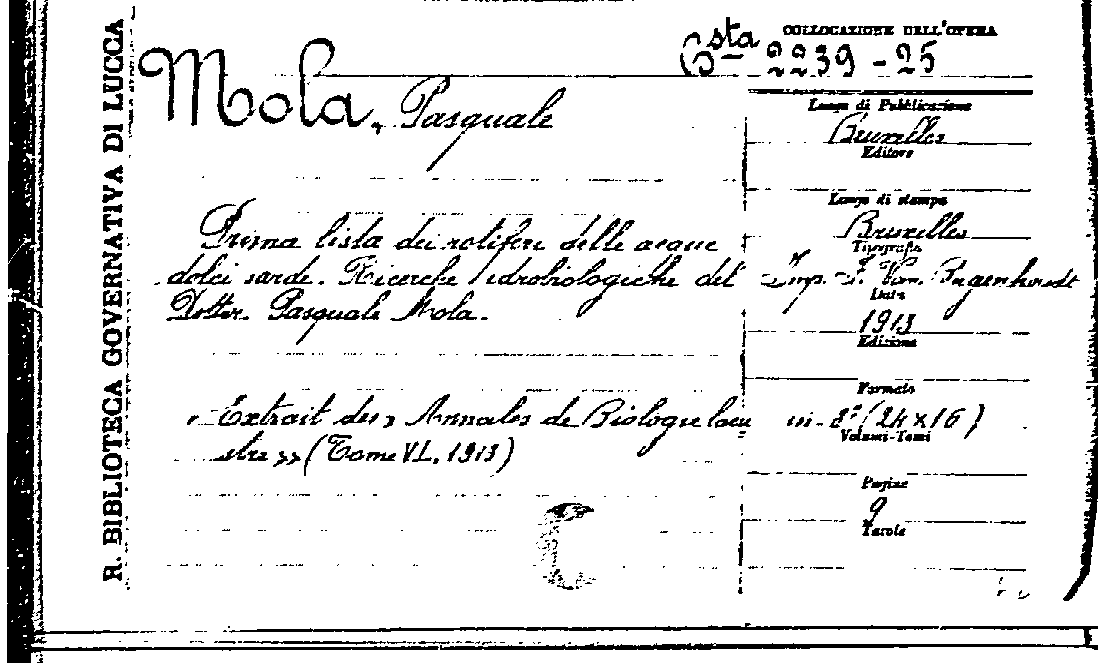 R. BIBLIOTECA GOVERNATIVA DI LUCCA
COLLOCAZIONE DELL'OPERA
Bsta 2239 - 25
Mola, Pasquale
Luogo di Pubblicazione
Bruxelles
Editore
Luogo di stampa
Bruxelles
Tipografia
Imp. F. Van
Data
1913
Edizione
Formato
in-8° (24 x 16)
Volumi-Tomi
Pagine
9
Tavole
Prima lista dei rotiferi delle acque
dolci sarde. Ricerche idrobiologiche del
Dottor. Pasquale Mola.
« Extrait des » Annales de Biologie lacu
stre » (Tome VI. 1913)